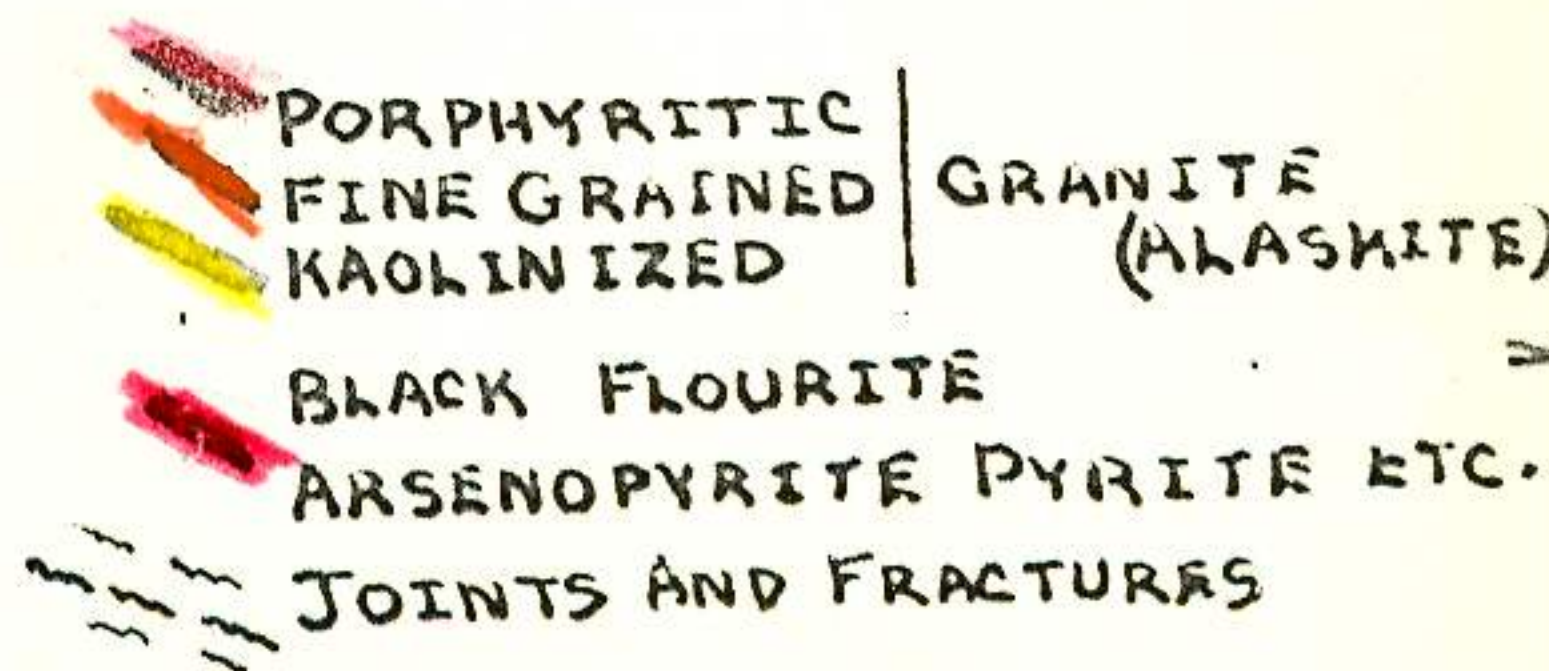 PORPHYRITIC
FINE GRAINED
KAOLINIZED
GRANITE
(ALASKITE)
BLACK FLOURITE
ARSENOPYRITE PYRITE ETC.
JOINTS AND FRACTURES